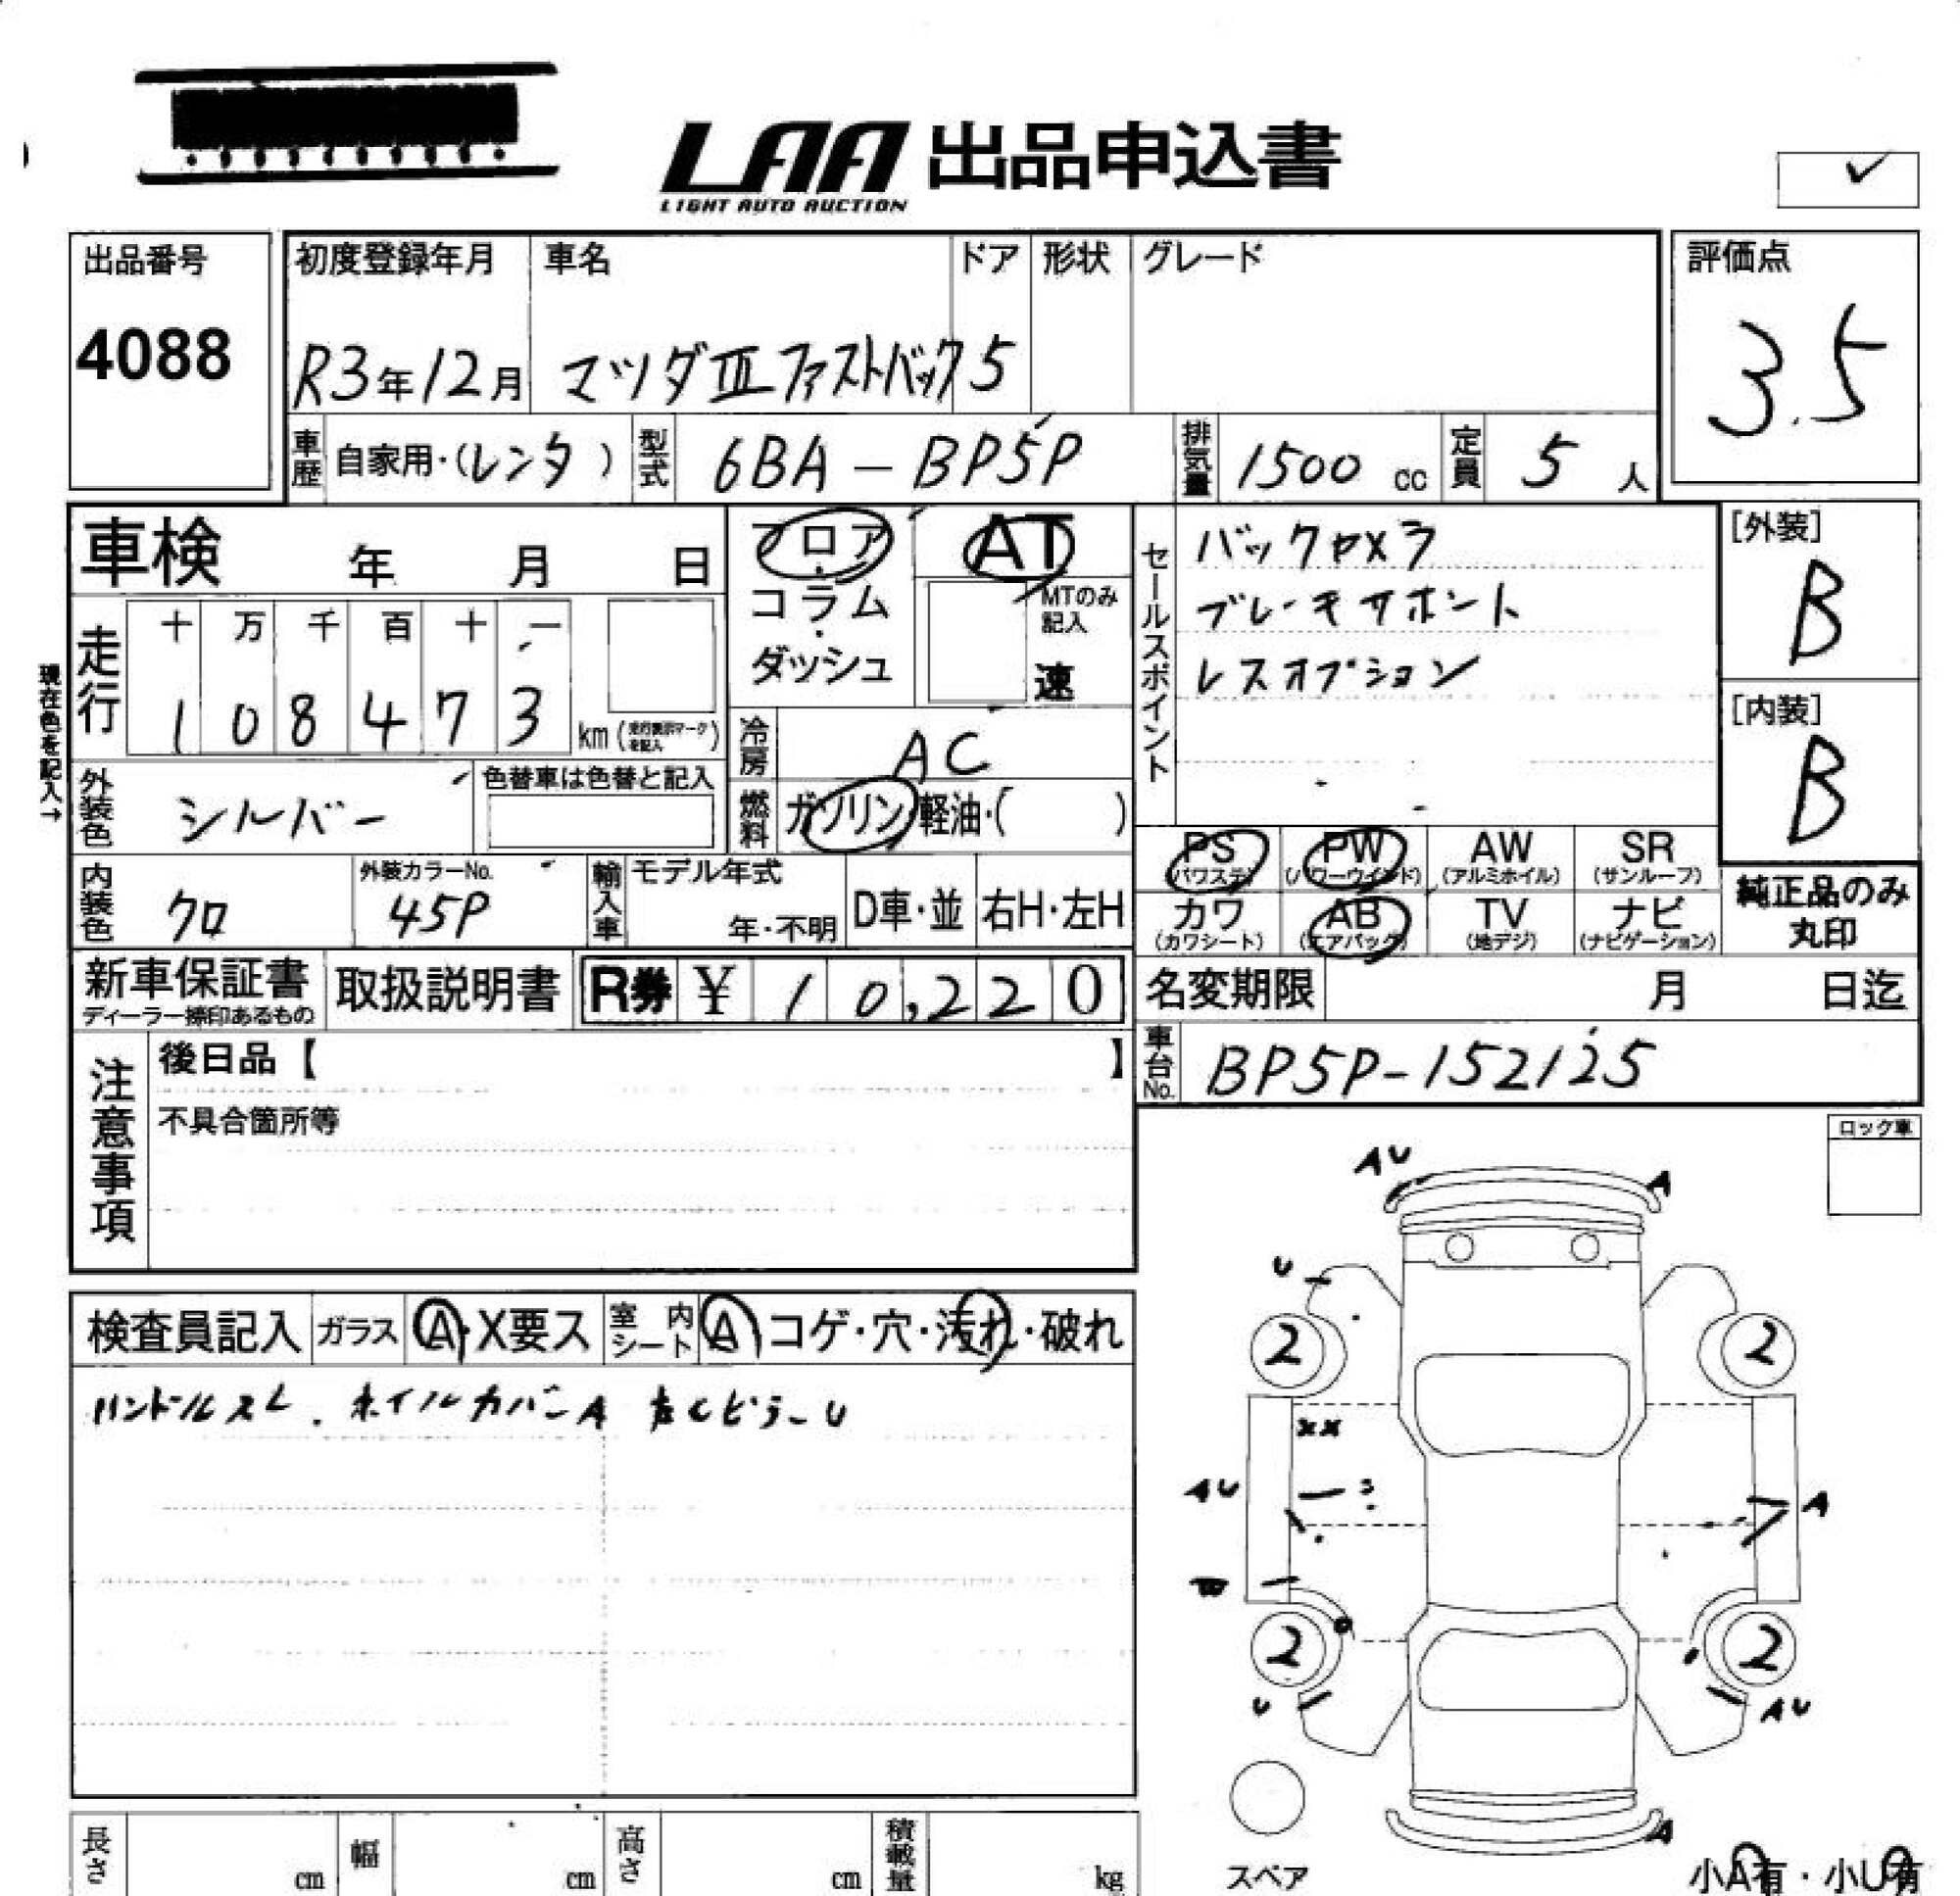 LAA 出品申込書
LIGHT AUTO AUCTION
出品番号
4088
初度登録年月
R3年12月
車名
マツダⅢファストバック
ドア
5
形状
グレード
評価点
3.5
車歴 自家用・(レンタ)
型式 6BA-BP5P
排気量 1500 cc
定員 5 人
車検 年 月 日
フロア・コラム・ダッシュ
AT
MTのみ記入
速
セールスポイント
バックカメラ
ブレーキサポート
レスオプション
[外装]
B
[内装]
B
現在色を記入→
走行
十 万 千 百 十 一
1 0 8 4 7 3 km
冷房 AC
燃料 ガソリン・軽油・( )
外装色 シルバー
色替車は色替と記入
内装色 クロ
外装カラーNo.
45P
輸入車
モデル年式
年・不明
D車・並
右H・左H
PS (パワステ)
PW (パワーウインド)
AW (アルミホイル)
SR (サンルーフ)
カワ (カワシート)
AB (エアバッグ)
TV (地デジ)
ナビ (ナビゲーション)
純正品のみ丸印
新車保証書
ディーラー捺印あるもの
取扱説明書
R券 ¥ 10,220
名変期限 月 日迄
車台No. BP5P-152125
注意事項
後日品【 】
不具合箇所等
ロック車
検査員記入
ガラス A・X要ス
室内シート A コゲ・穴・汚れ・破れ
ハンドルスレ. ホイルカバーA
AU
A
U
2
2
XX
AU
A
2
2
U
AU
A
スペア
小A有・小U有
長さ cm
幅 cm
高さ cm
積載量 kg